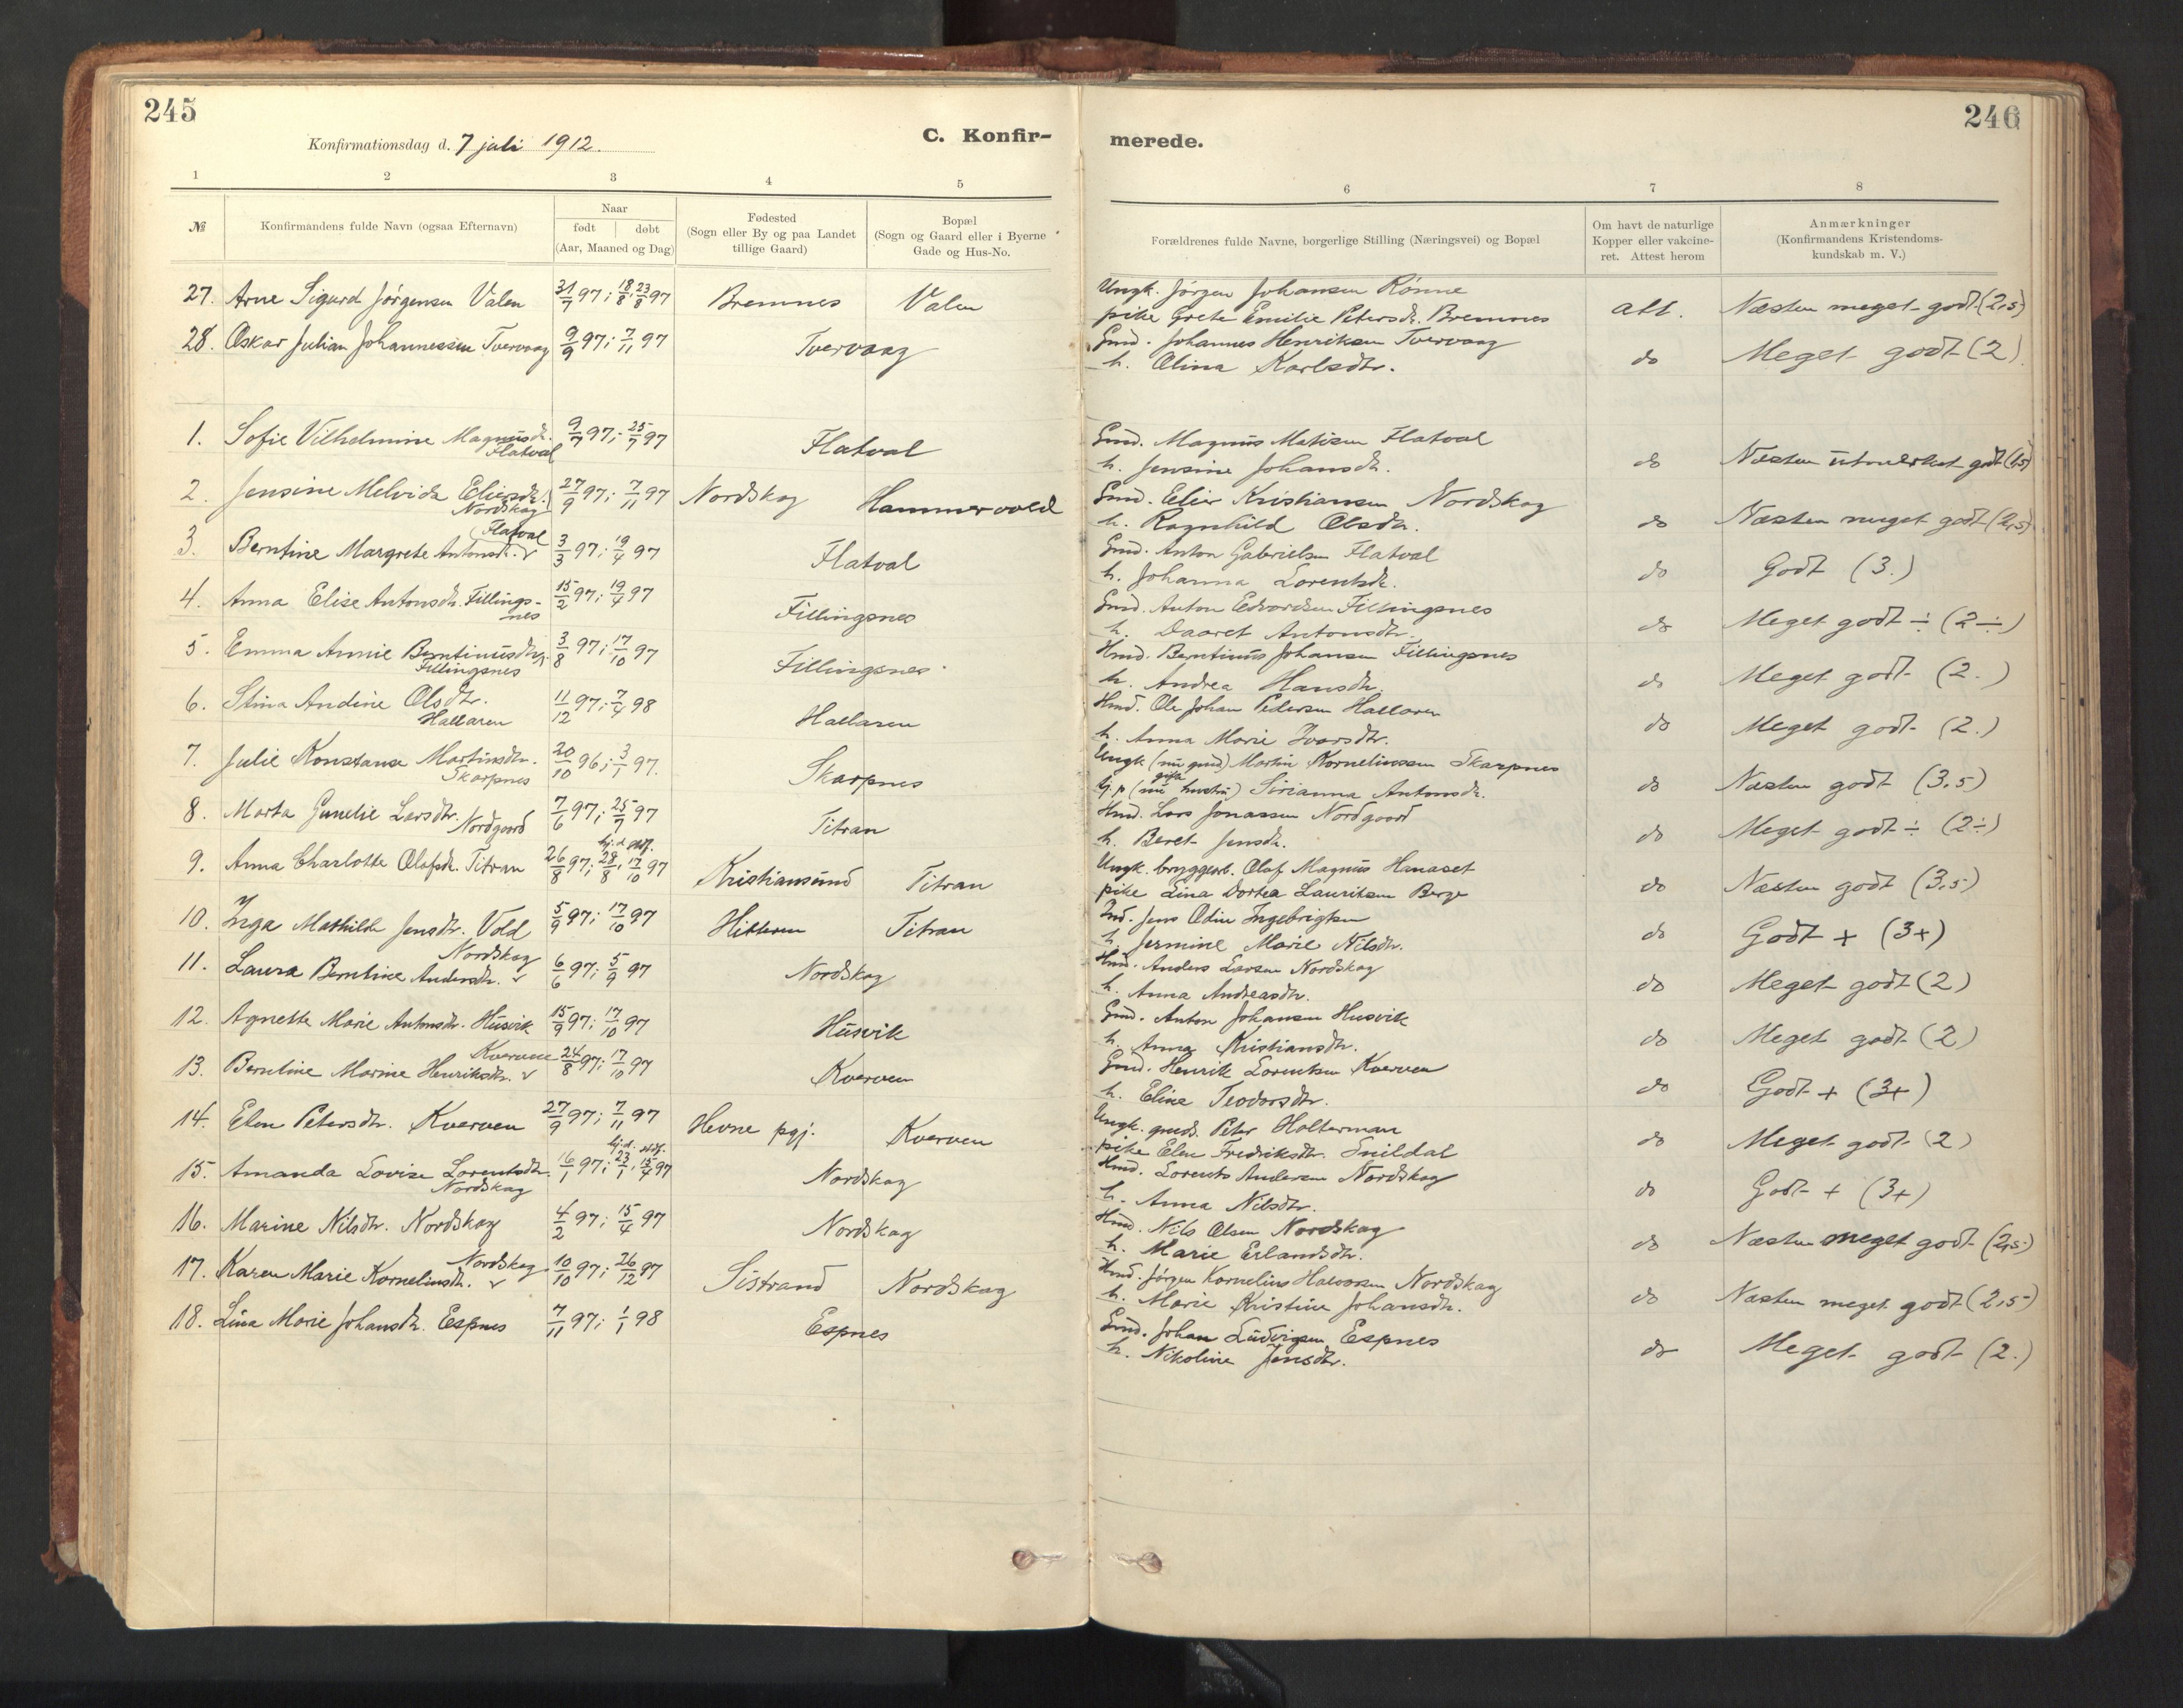 245
246
Konfirmationsdag d. 7 juli 1912.
C. Konfir-
merede.
1 2 3 4 5 6 7 8
№
Konfirmandens fulde Navn (ogsaa Efternavn)
Naar
født døbt
(Aar, Maaned og Dag)
Fødested
(Sogn eller By og paa Landet
tillige Gaard)
Bopæl
(Sogn og Gaard eller i Byerne
Gade og Hus-No.
Forældrenes fulde Navne, borgerlige Stilling (Næringsvei) og Bopæl
Om havt de naturlige
Kopper eller vakcine-
ret. Attest herom
Anmærkninger
(Konfirmandens Kristendoms-
kundskab m. V.)
27. Arne Sigurd Jørgensen Valen 31/7 97; 18/8, 23/8 97 Bremnes Valen
Ungk. Jørgen Johansen Rønne
pike Grete Emilie Petersdr. Bremnes att. Næsten meget godt (2,5)
28. Oskar Julian Johannessen Tvervaag 9/9 97; 7/11 97 Tvervaag
Gmd. Johannes Henriksen Tvervaag
h. Olina Karlsdtr. do Meget godt (2)
1. Sofie Vilhelmine Magnusdr. 9/7 97; 25/7 97 Flatval
Flatval
Gmd. Magnus Matisen Flatval
h. Jensine Johansdr. do Næsten utmerket godt (1,5)
2. Jensine Melvida Eliersdr. 27/9 97; 7/11 97 Nordskag Hammervold
Nordskag
Gmd. Elier Kristiansen Nordskag
h. Ragnhild Olsdr. do Næsten meget godt (2,5)
Flatval
3. Berntine Margrete Antonsdr. v 3/3 97; 19/4 97 Flatval
Gmd. Anton Gabrielsen Flatval
h. Johanna Lorentsdr. do Godt (3.)
4. Anna Elise Antonsdr. Fillings- 15/2 97; 19/4 97 Fillingsnes
nes
Gmd. Anton Edvardsen Fillingsnes
h. Daaret Antonsdtr. do Meget godt ÷ (2÷)
5. Emma Annie Berntinusdtr. 3/8 97; 17/10 97 Fillingsnes
Fillingsnes
Hmd. Berntinus Johansen Fillingsnes
h. Andrea Hansdtr. do Meget godt (2.)
6. Stina Andine Olsdtr. 11/12 97; 7/4 98 Hallaren
Hallaren
Hmd. Ole Johan Pedersen Hallaren
h. Anna Marie Ivarsdtr. do Meget godt (2.)
7. Julie Konstanse Martinsdtr. 20/10 96; 3/1 97. Skarpnes
Skarpnes
Ungk (nu gmd) Martin Kornelinssen Skarpnes
gifte
G.p (nu hustru) Sirianna Antonsdr. do Næsten godt (3,5)
8. Marta Gunelie Larsdtr. 7/6 97; 25/7 97 Titran
Nordgaard
Hmd. Lars Jonassen Nordgaard
h. Beret Jensdr. do Meget godt ÷ (2÷)
hj.d. stdf.
9. Anna Charlotte Olafsdr. Titran 26/8 97; 28/8, 17/10 97 Kristiansund Titran
Ungk. bryggearb. Olaf Magnus Hanaset
pike Lina Dortea Lauritsen Berge do Næsten godt (3,5)
10. Inga Mathilde Jensdtr. Vold 5/9 97; 17/10 97 Hitteren Titran
Ind. Jens Odin Ingebrigtsen
h. Jermine Marie Nilsdtr. do Godt + (3+)
Nordskag
11. Laura Berntine Andersdtr. v 6/6 97; 5/9 97 Nordskag
Hmd. Anders Larsen Nordskag
h. Anna Andreasdtr. do Meget godt (2)
12. Agnette Marie Antonsdtr. Husvik 15/9 97; 17/10 97 Husvik
Gmd. Anton Johansen Husvik
h. Anna Kristiansdtr. do Meget godt (2)
Kverven
13. Berntine Marine Henriksdtr. v 24/8 97; 17/10 97 Kverven
Gmd. Henrik Lorentsen Kverven
h. Eline Teodorsdtr. do Godt + (3+)
14. Elen Petersdtr. Kverven 27/9 97; 7/11 97 Hevne pgj. Kverven
Ungk. gmds. Peter Holterman
pike Elen Fredriksdtr. Snildal do Meget godt (2)
hj.d. stdf.
15. Amanda Lovise Lorentsdtr. 16/1 97; 23/1, 15/4 97 Nordskag
Nordskag
Hmd. Lorents Andersen Nordskag
h. Anna Nilsdtr. do Godt + (3+)
16. Marine Nilsdtr. Nordskag 4/2 97; 15/4 97 Nordskag
Hmd. Nils Olsen Nordskag
h. Marie Erlandsdtr. do Næsten meget godt (2,5)
Nordskag
17. Karen Marie Kornelinsdtr. v 10/10 97; 26/12 97 Sistrand Nordskag
Hmd. Jørgen Kornelius Halvorsen Nordskag
h. Marie Kristine Johansdr. do Næsten meget godt (2,5)
18. Lina Marie Johansdtr. Espnes 7/11 97; 1/1 98 Espnes
Gmd. Johan Ludvigsen Espnes
h. Nikoline Jensdtr. do Meget godt (2.)